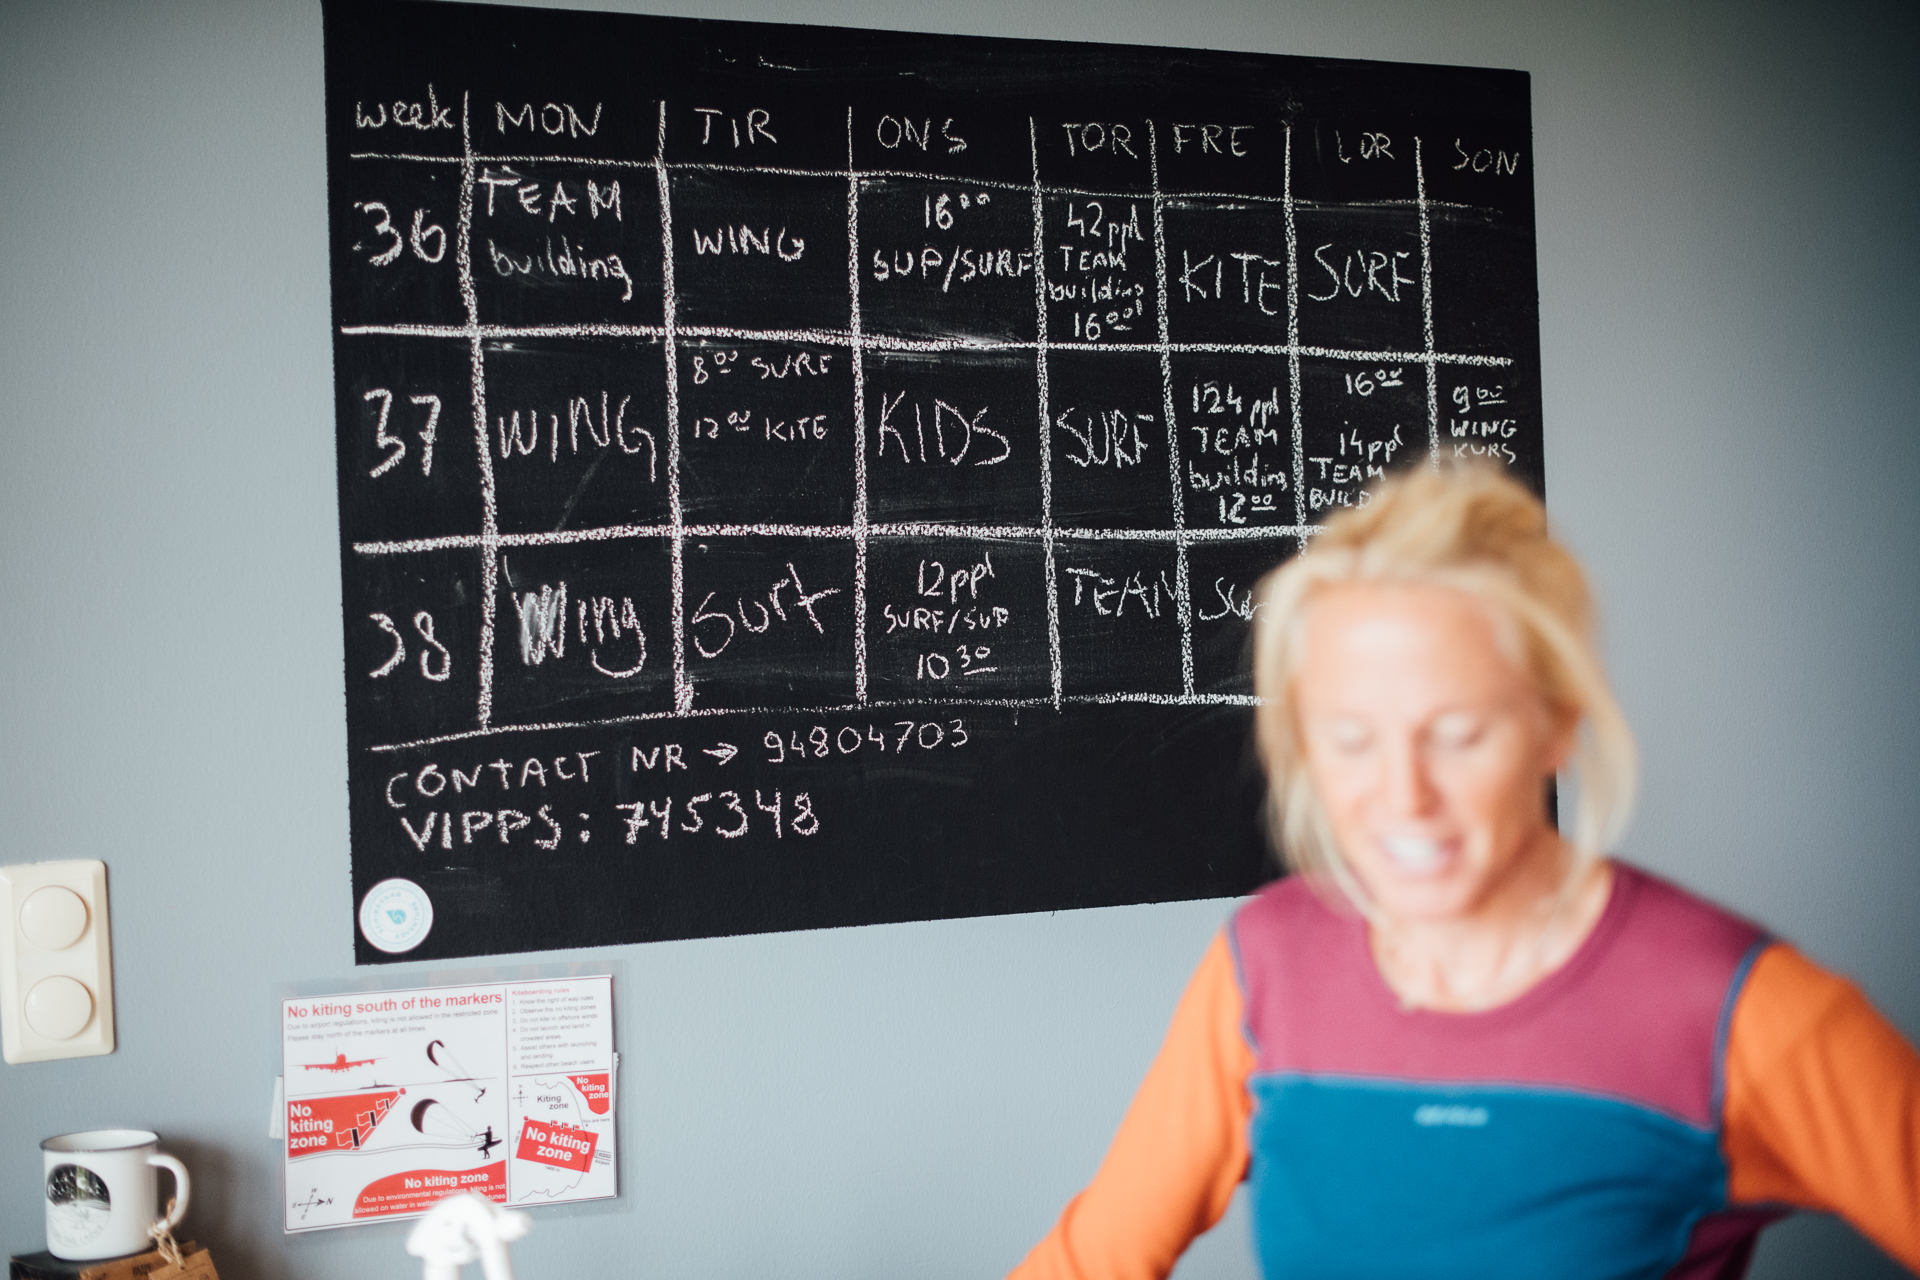 week MON TIR ONS TOR FRE LØR SØN
36
TEAM
building
WING
16⁰⁰
SUP/SURF
42ppl
TEAM
building
16⁰⁰
KITE
SURF
37
WING
8⁰⁰ SURF
12⁰⁰ KITE
KIDS
SURF
124 ppl
TEAM
building
12⁰⁰
16⁰⁰
14ppl
TEAM
BUILD
9⁰⁰
WING
KURS
38
Wing
Surf
12ppl
SURF/SUP
10³⁰
TEAM
CONTACT NR → 94804703
VIPPS: 745348
No kiting south of the markers
Due to airport regulations, kiting is not allowed in the restricted zone.
Please stay north of the markers at all times.
No
kiting
zone
No kiting zone
Due to environmental regulations, kiting is not
allowed on water in
Kiteboarding rules
1. Know the right of way rules
2. Observe the no kiting zones
3. Do not kite in offshore winds
4. Do not launch and land in
crowded areas.
5. Assist others with launching
and landing
6. Respect other beach users
No
kiting
zone
Kiting
zone
You are here
No kiting
zone